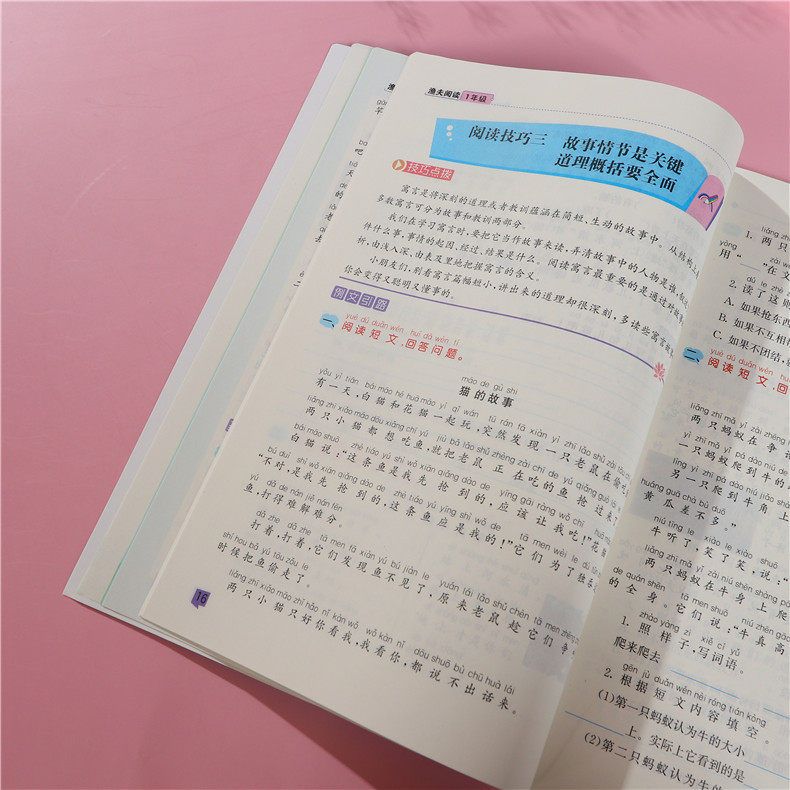 渔夫阅读 1年级
阅读技巧三 故事情节是关键
道理概括要全面
技巧点拨
寓言是将深刻的道理或者教训蕴涵在简短、生动的故事中。从结构上
多数寓言可分为故事和教训两部分。
我们在学习寓言时，要把它当作故事来读，弄清故事中的人物是谁，
件什么事，事情的起因、经过、结果是什么。阅读寓言最重要的是通过对故事
析，由浅入深、由表及里地把握寓言的含义。
小朋友们，别看寓言篇幅短小，讲出来的道理却很深刻，多读些寓言故
你会变得又聪明又懂事的。
例文引路
yuè dú duǎn wén huí dá wèn tí
一、阅读短文，回答问题。
māo de gù shi
猫的故事
yǒu yì tiān bái māo hé huā māo yì qǐ wán tū rán fā xiàn yì zhī lǎo shǔ zài tōu chī
有一天，白猫和花猫一起玩，突然发现一只老鼠在偷吃
liǎng zhī xiǎo māo dōu xiǎng chī yú jiù bǎ lǎo shǔ zhèng zài chī de yú qiǎng guò lái
两只小猫都想吃鱼，就把老鼠正在吃的鱼抢过来
bái māo shuō zhè tiáo yú shì wǒ xiān qiǎng dào de yīng gāi ràng wǒ chī
白猫说：“这条鱼是我先抢到的，应该让我吃！”花猫
bú duì shì wǒ xiān qiǎng dào de zhè tiáo yú yīng shì wǒ de tā men wèi le
“不对，是我先抢到的，这条鱼应是我的！”它们为了独
yú dǎ de nán jiě nán fēn
鱼，打得难解难分。
dǎ zhe dǎ zhe tā men fā xiàn yú bú jiàn le yuán lái lǎo shǔ chèn tā men zhēng
打着，打着，它们发现鱼不见了，原来老鼠趁它们争
shí hou bǎ yú tōu zǒu le
时候把鱼偷走了。
liǎng zhī xiǎo māo zhǐ hǎo nǐ kàn wǒ wǒ kàn nǐ dōu shuō bù chū huà lái
两只小猫只好你看我，我看你，都说不出话来。
16
liǎng zhī
1. 两只
yòng
用“ ”在文
2. 读了这则
A. 如果抢东西
B. 如果不互相
C. 如果不团结，
yuè dú duǎn wén
二、阅读短文，回
liǎng zhī mǎ yǐ zài zhēng
两只蚂蚁在争论
yì zhī mǎ yǐ pá dào niú de
一只蚂蚁爬到牛的
lìng yì zhī pá dào niú jiǎo
另一只爬到牛角上
huáng guā chà bù duō
黄瓜差不多。”
niú tīng le xiào le xiào shuō
牛听了，笑了笑，说：“
liǎng zhī mǎ yǐ zài niú shēn shang pá
两只蚂蚁在牛身上爬
de quán shēn tā men shuō niú zhēn gāo
的全身。它们说：“牛真高
zhào yàng zi xiě cí yǔ
1. 照样子，写词语。
爬来爬去
gēn jù duǎn wén nèi róng tián kòng
2. 根据短文内容填空。
(1)第一只蚂蚁认为牛的大小
上。实际上它看到的是
(2)第二只蚂蚁认为牛的